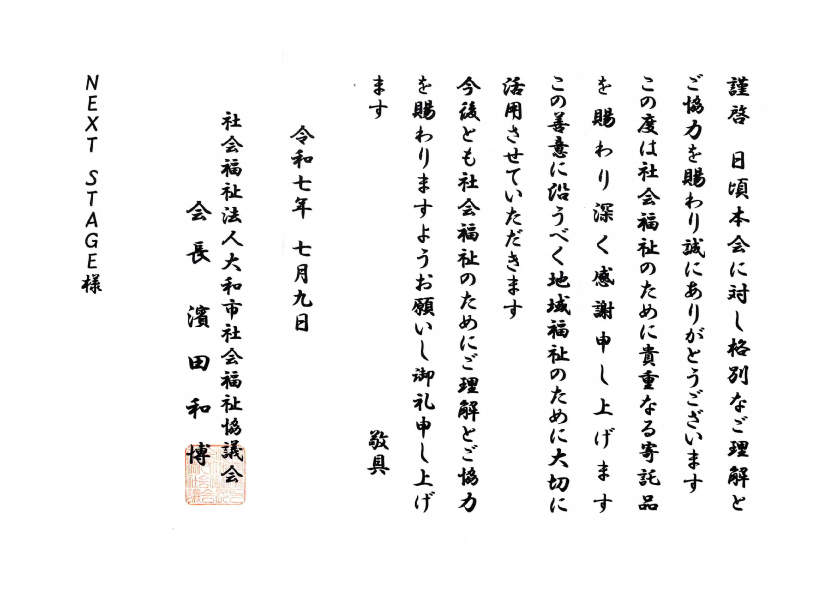 謹啓 日頃本会に対し格別なご理解と
ご協力を賜わり誠にありがとうございます
この度は社会福祉のために貴重なる寄託品
を賜わり深く感謝申し上げます
この善意に沿うべく地域福祉のために大切に
活用させていただきます
今後とも社会福祉のためにご理解とご協力
を賜わりますようお願いし御礼申し上げ
ます 敬具
令和七年 七月九日
社会福祉法人大和市社会福祉協議会
会長 濱田和博
NEXT STAGE様